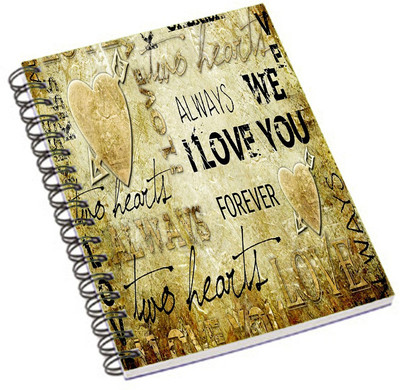 two hearts
ALWAYS
WE
I LOVE YOU
two hearts
FOREVER
ALWAYS
two hearts
LOVE
WAYS